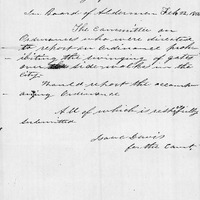 In Board of Aldermen Feb 12
The Committee on
Ordinances who were directed
to report an Ordinance proh-
ibiting the swinging of gates
over sidewalks in the
City
Would report the accom-
panying Ordinance
All of which is respectfully
submitted
Isaac Davis
for the Comt